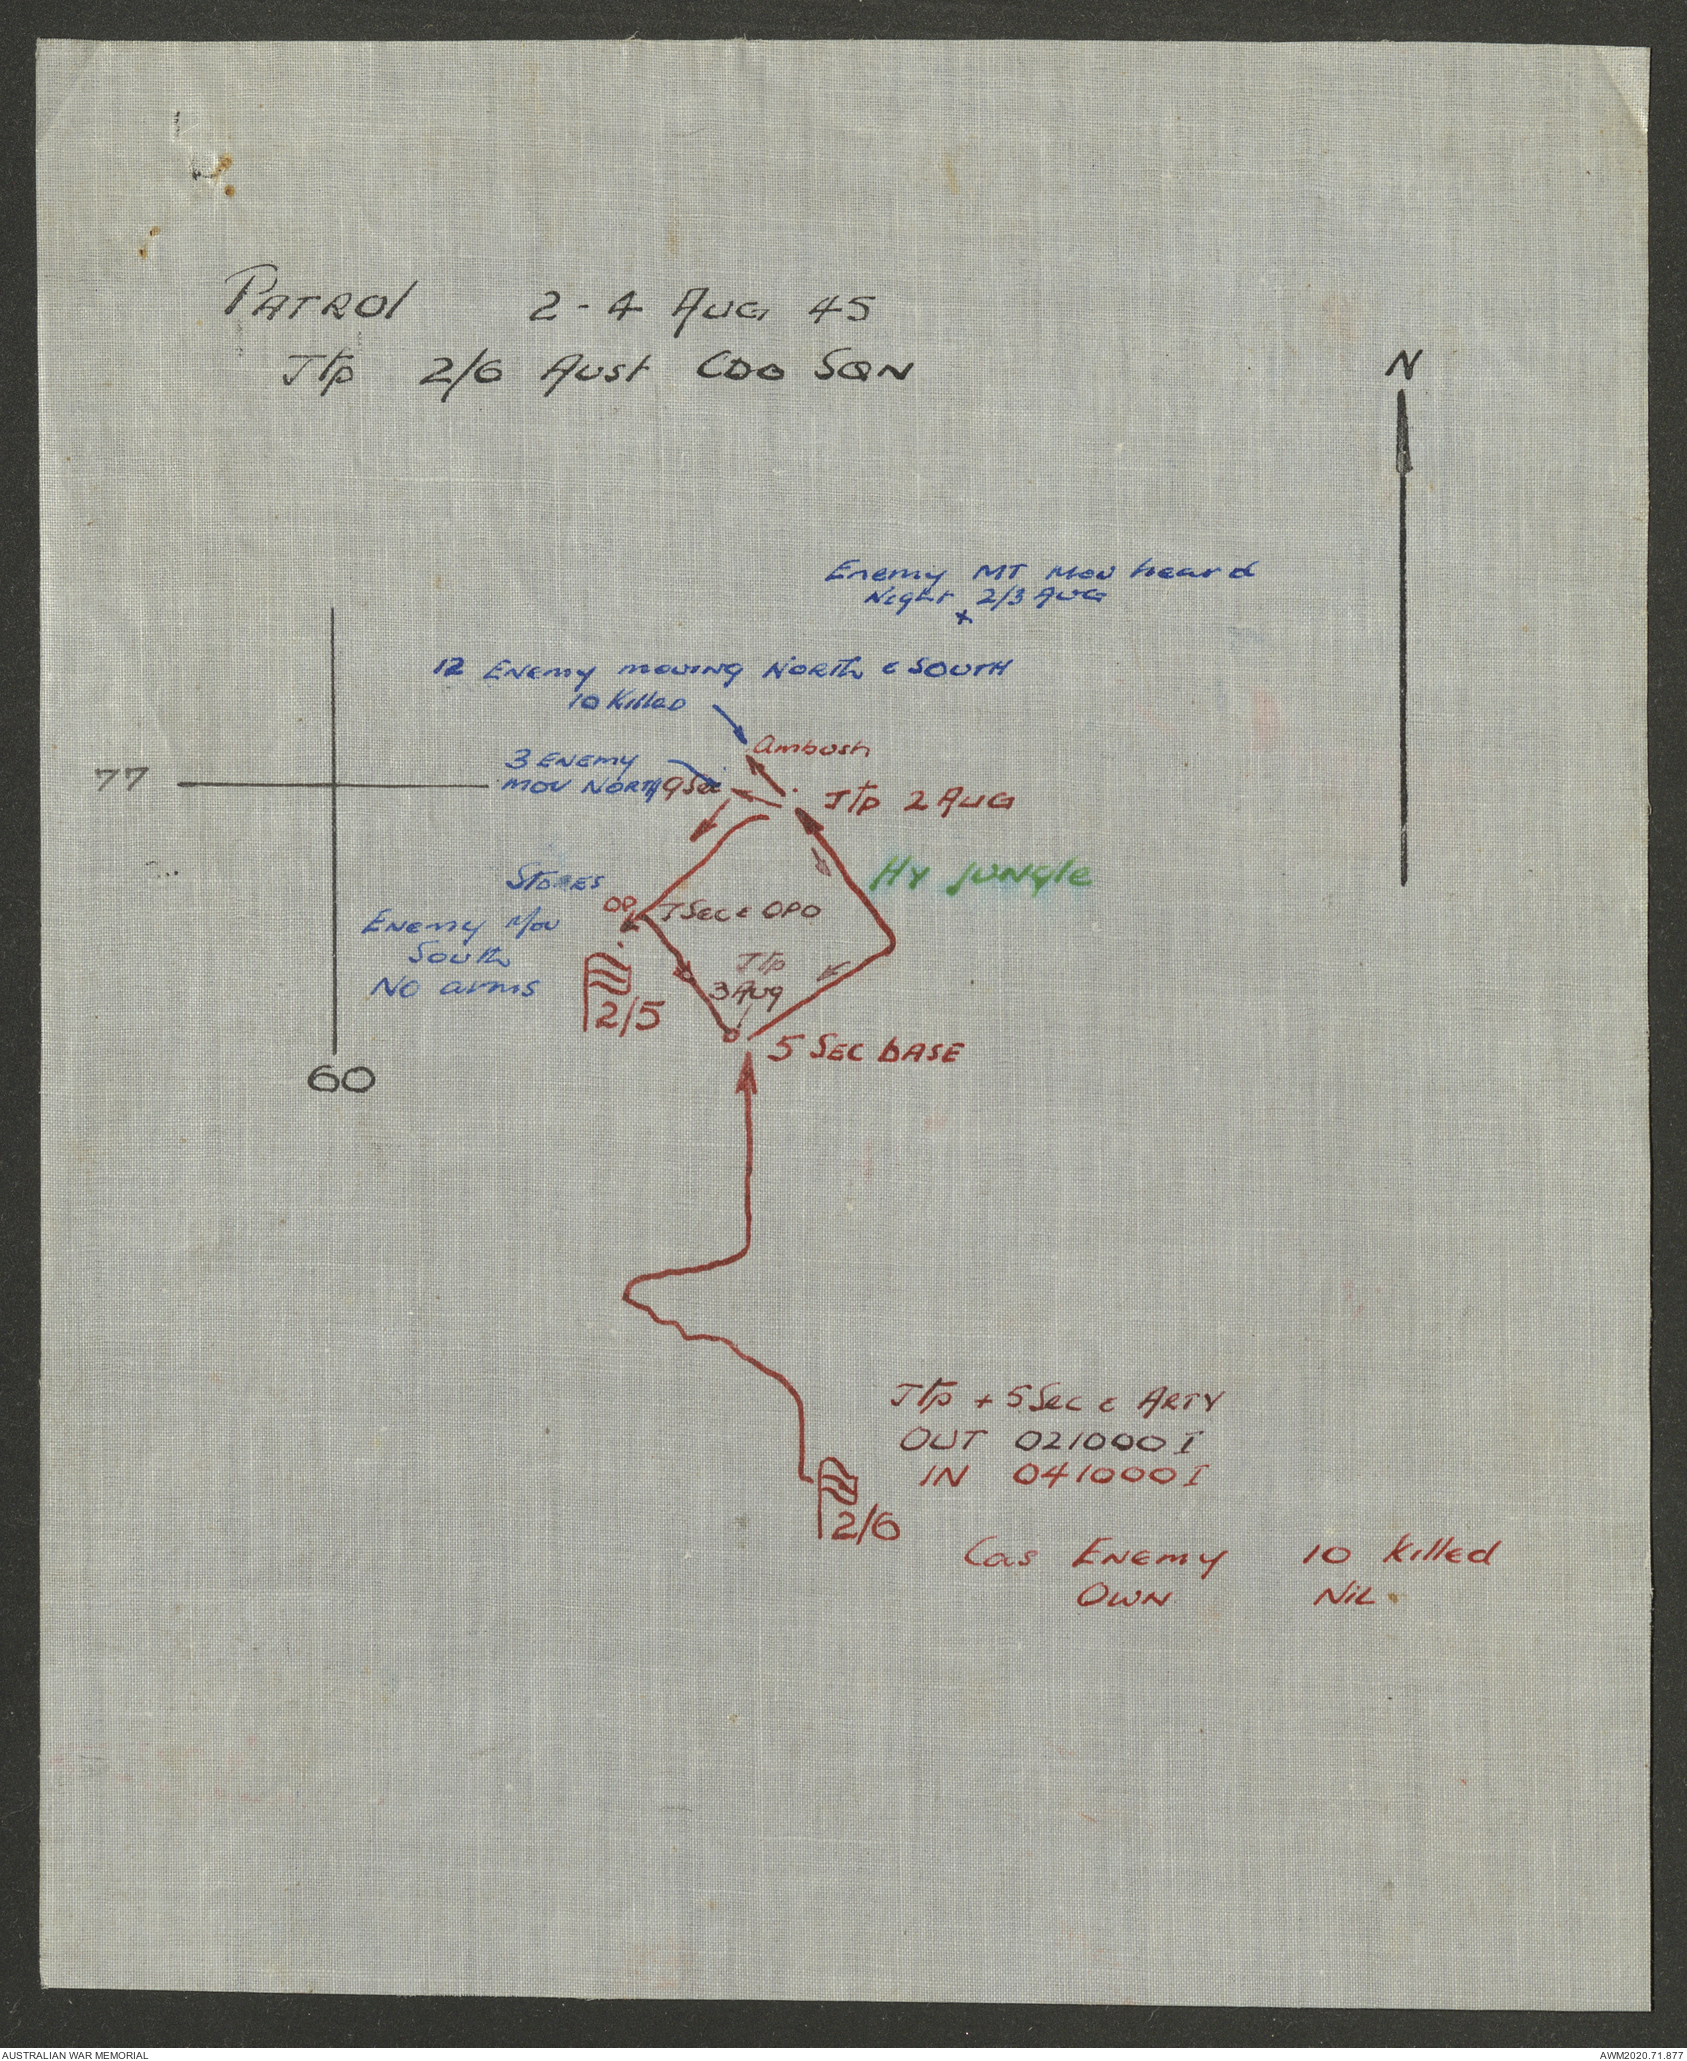 PATROL 2-4 AUG 45
J tp 2/6 Aust CDO SQN
N
Enemy MT mov heard
Night 2/3 AUG
x
12 Enemy moving North & SOUTH
10 Killed
Ambush
3 ENEMY
MOV NORTH 9 Sec
77
J tp 2 AUG
HY JUNGLE
STORES
OP
J Sec & OPO
Enemy Mov
South
No arms
J tp
3 Aug
2/5
5 SEC BASE
60
J tp + 5 Sec & ARTY
OUT 021000 I
IN 041000 I
2/6
Cas ENEMY 10 Killed
OWN NIL
AUSTRALIAN WAR MEMORIAL
AWM2020.71.877